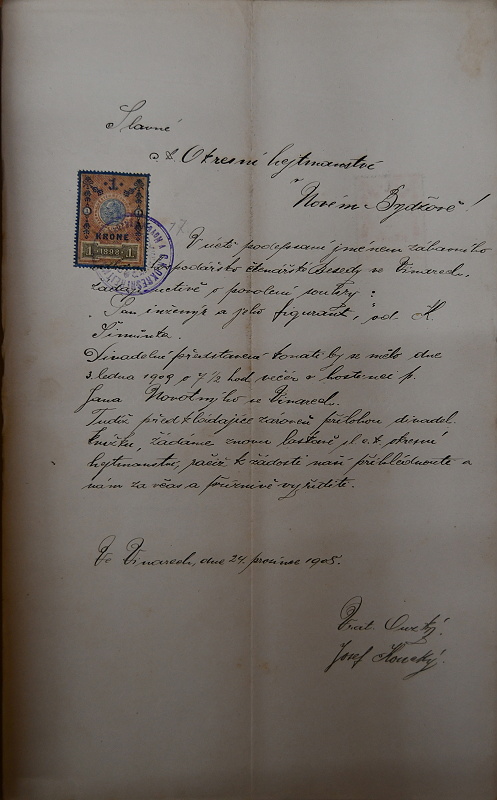 Slavné
c. k. Okresní hejtmanství
v
Novém Bydžově!
KRONE
1 1898 1
V úctě podepsaní jménem zábavního
hospodářsko čtenářské Besedy ve Vinarech,
žádají uctivě o povolení soutěry:
"Pan inženýr a jeho figurant", od. K.
Šimůnka.
Divadelní představení konati by se mělo dne
3. ledna 1909 o 7 1/2 hod. večer v hostinci p.
Jana Novotného ve Vinarech.
Tudíž předkládajíce zároveň přílohou divadel.
knížku, žádáme znovu laskavě, sl. c. k. okresní
hejtmanství, račiž k žádosti naší přihlédnouti a
nám za včas a příznivě vyříditi.
Ve Vinarech, dne 24. prosince 1908.
Josef Horský.